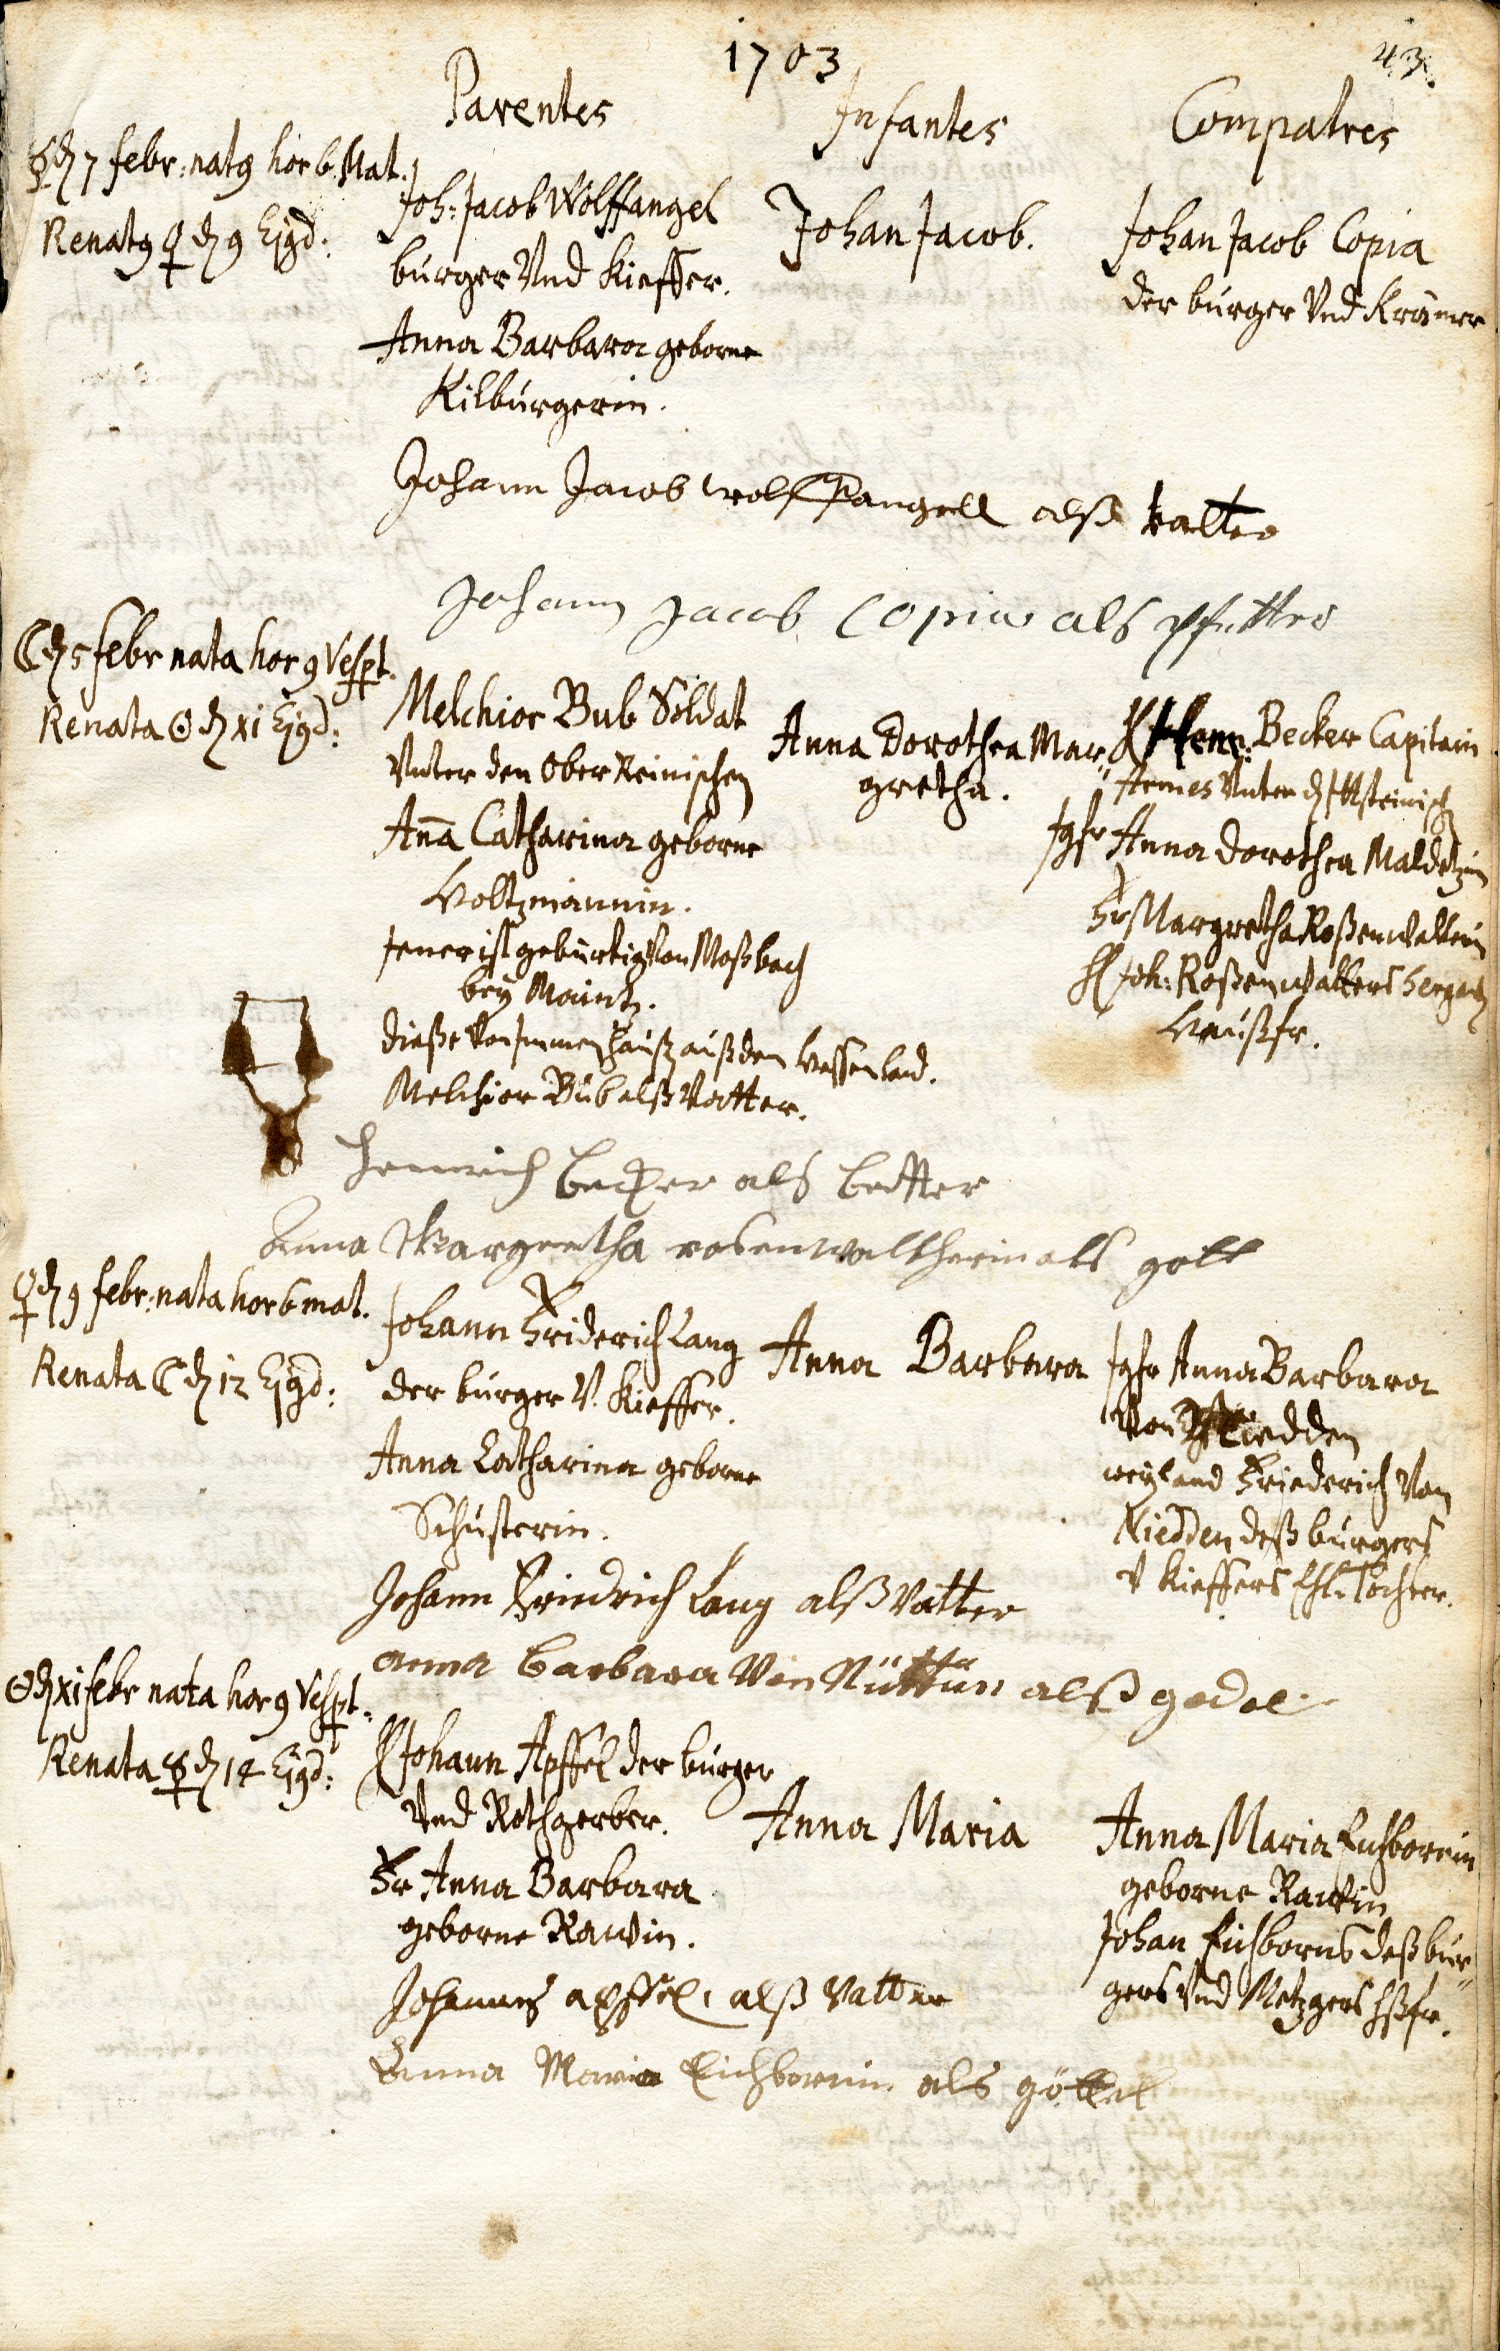 1703
43.
Parentes
Infantes
Compatres
☿ d 7 febr: natq hor 6. Mat.
Renatq ♀ d 9 Ejqd:
Joh: Jacob Wolffangel
burger Vnd Kieffer.
Anna Barbara geborne
Kilburgerin.
Johan Jacob.
Johan Jacob Copia
der burger Vnd Krämer
Johann Jacob wolffangell alß vatter
Johann Jacob Copia als pfetter
☾ d 5 febr nata hor 9 Vespt.
Renata ☉ d xi Ejqd:
Melchior Bub Soldat
Vnter den Ober Reinischen
Aña Catharina geborne
Holtzmännin.
Jener ist gebürtig Von Moßbach
bey Maintz.
dieße Von Immenhauß auß dem Hessenland.
Anna Dorothea Mar„
gretha.
H Henr: Becker Capitain
Armes Vnter d Ittsteinisch
Jgfr Anna Dorothea
Fr Margretha Roßenwaltterin
H Joh: Roßenwaltters
Haußfr.
Melchior Bub alß Vatter.
Henrich Becker als Petter
Anna Margretha rosenwaltherin als gott
♀ d 9 febr: nata hor 6 mat.
Renata ☾ d 12 Ejqd:
Johann Friderich Lang
der burger V. Kieffer.
Anna Catharina geborne
Schusterin.
Anna Barbara
Jgfr Anna Barbara
Von Niedden
weyland Friederich Von
Niedden deß burgers
V Kieffers Ehl. Tochter.
Johann Friedrich Lang alß Vatter
anna barbara Von Nütten alß godel
☉ d xi febr nata hor 9 Vespt.
Renata ☿ d 14 Ejqd:
H Johann Apffel der burger
Vnd Rothgerber.
Fr Anna Barbara
geborne Rauin.
Anna Maria
Anna Maria Eichbornin
geborne Rauin
Johan Eichborns deß bur„
gers Vnd Metzgers Hßfr.
Johannes apffel, alß Vatter
Anna Maria Eichbornin als göttel